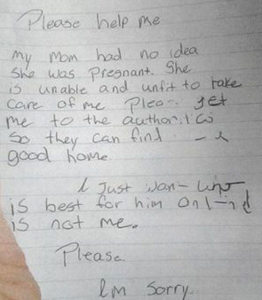 Please help me
My Mom had no idea
She was Pregnant. She
is unable and unfit to take
care of me Pleas get
me to the authorities
So they can find
good home.
I Just
is best for him
is not me.
Please
Im Sorry.